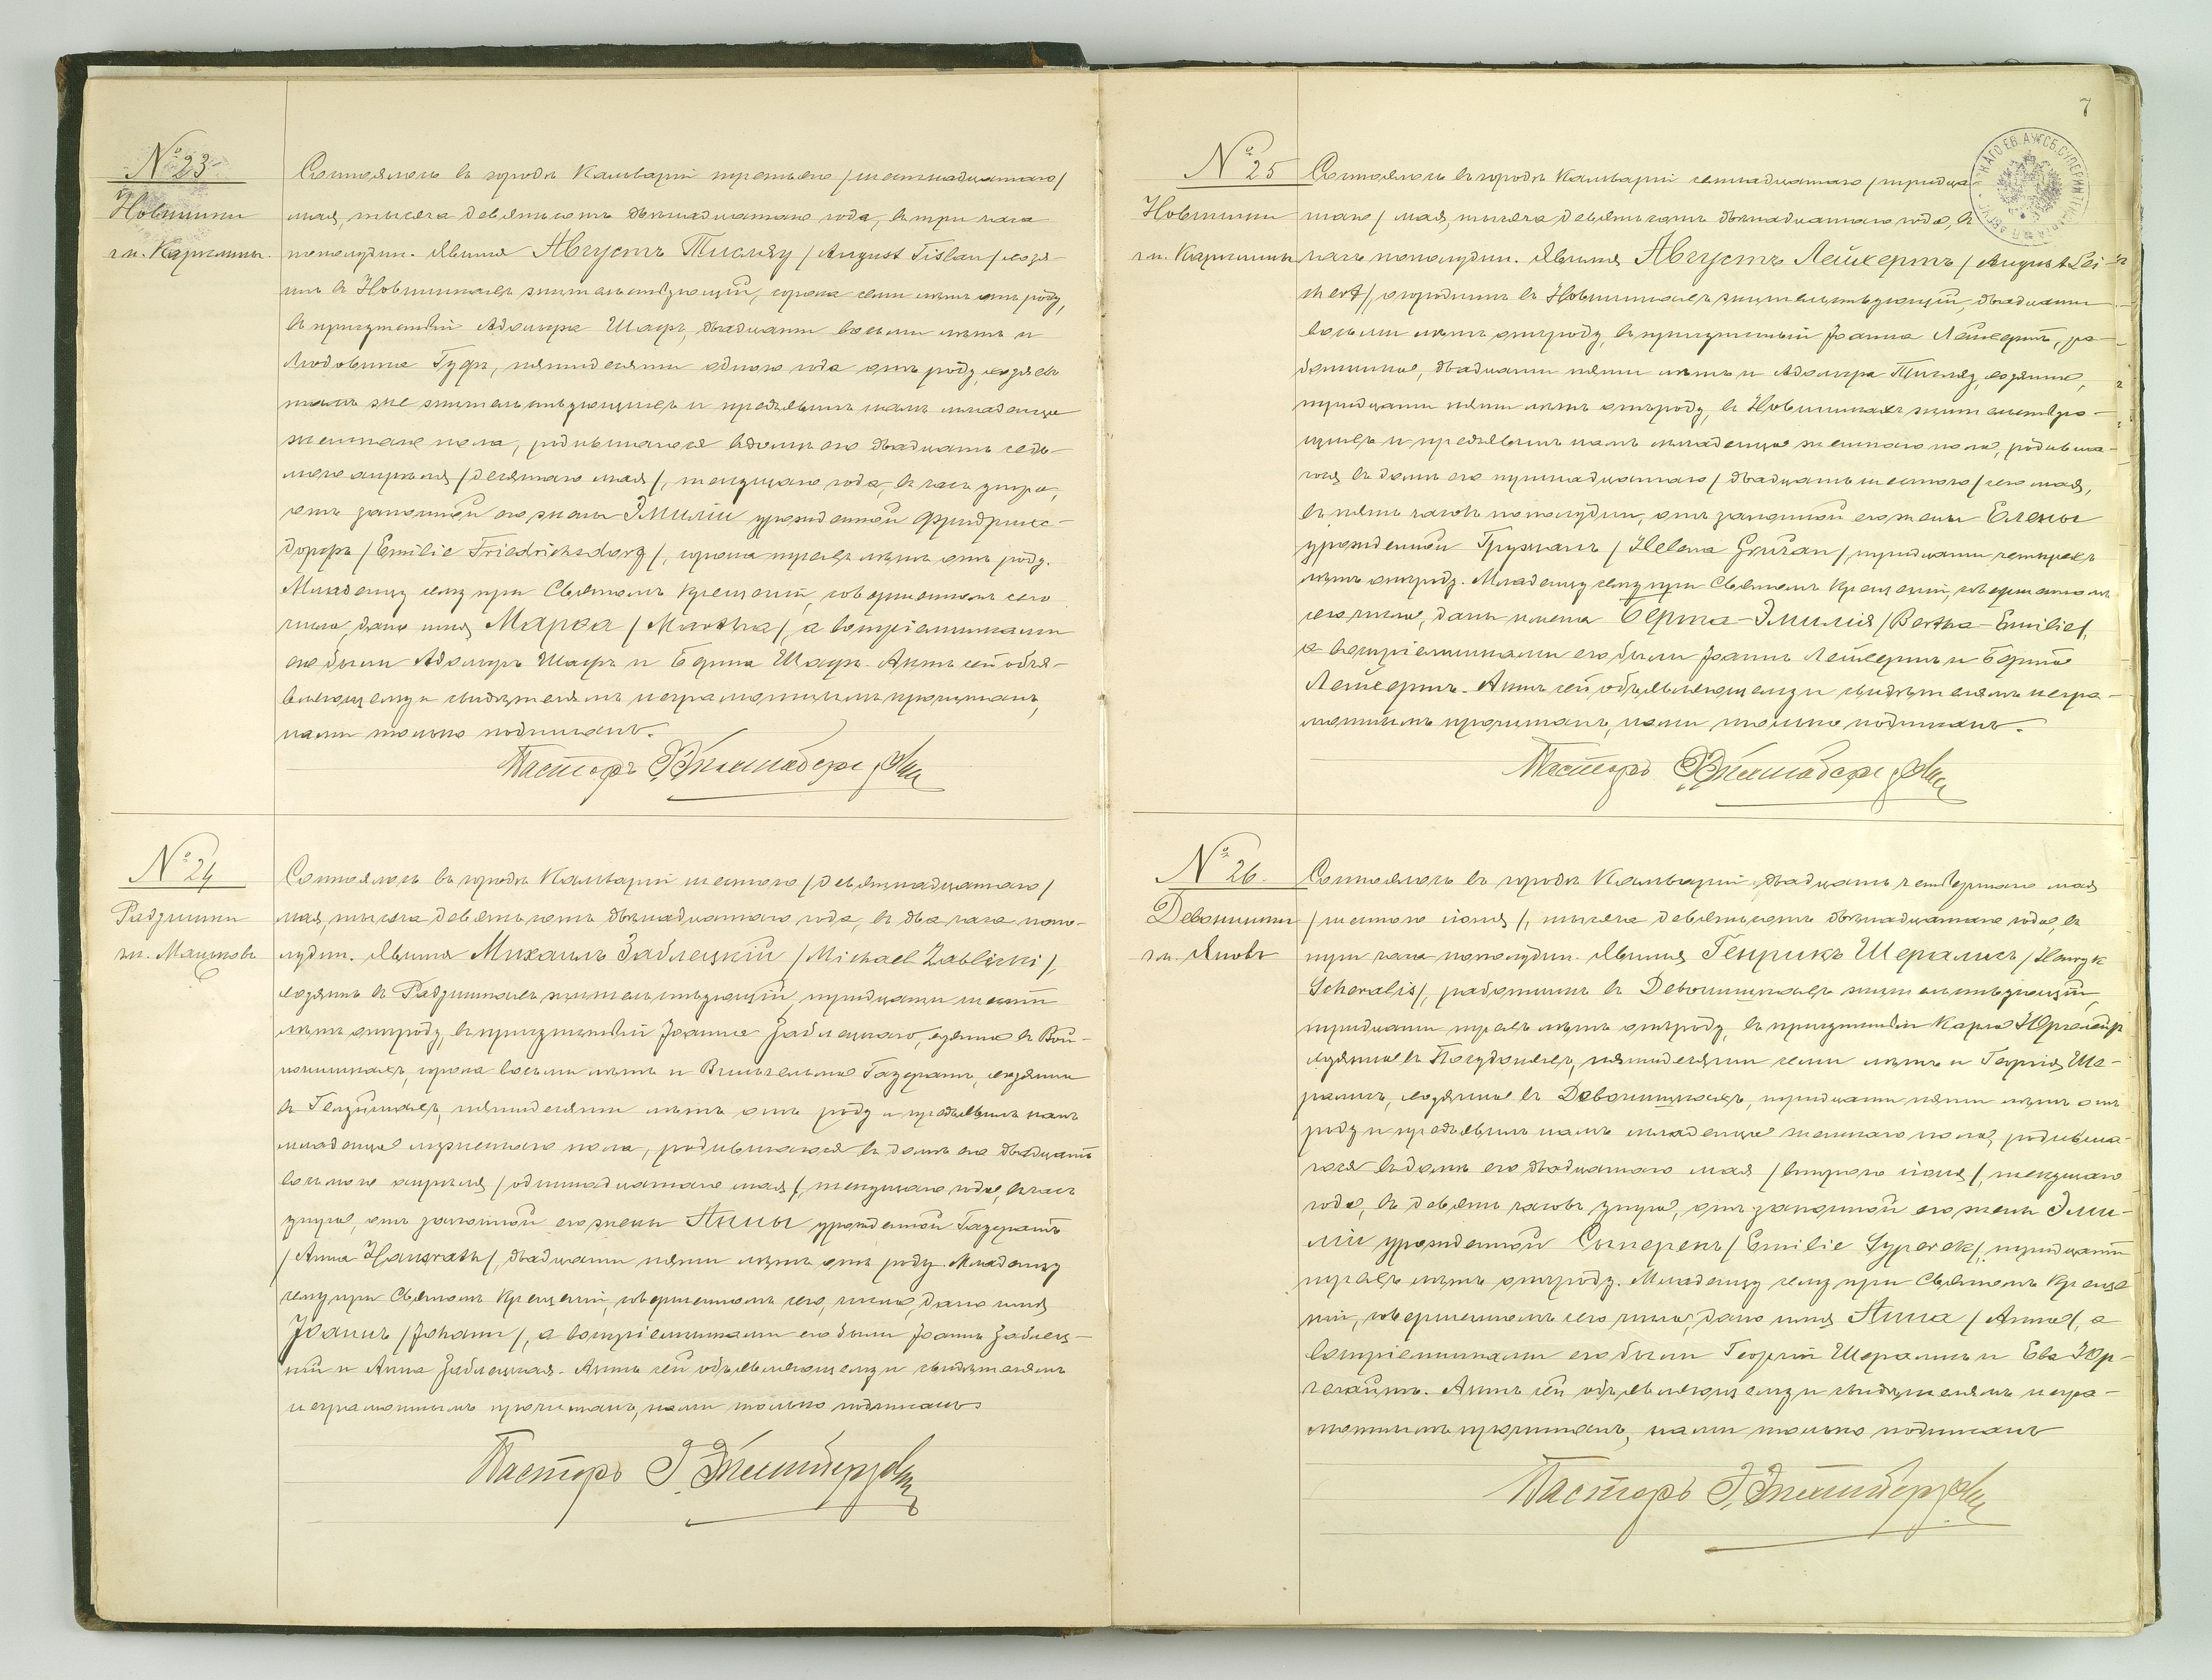 № 23
Новинники
гм. Каргманы.
Состоялось въ городѣ Кальваріи третьяго /шестнадцатаго/
мая, тысяча девятьсотъ двѣнадцатаго года, въ три часа
пополудни. Явился Августъ Тислау /August Tislau/ хозя-
инъ въ Новинникахъ жительствующій, сорока семи лѣтъ отъ роду,
въ присутствіи Адольфа Шафъ, двадцати восьми лѣтъ и
Людовика Гуфъ, пятидесяти одного года отъ роду, хозяевъ
тамъ же жительствующихъ и предъявилъ намъ младенца
женскаго пола, родившагося въ домѣ его двадцать седь-
мого апрѣля /десятаго мая/, текущаго года, въ часъ утра,
отъ законной его жены Эмиліи урожденной Фридрихс-
дорфъ /Emilie Friedrichsdorf/, сорока трехъ лѣтъ отъ роду.
Младенцу сему при Святомъ Крещеніи, совершенномъ сего
числа, дано имя Марѳа /Martha/, а воспріемниками
его были Адольфъ Шафъ и Берта Шафъ. Актъ сей объя-
вляющему и свидѣтелямъ неграмотнымъ прочитанъ,
нами только подписанъ.
Пасторъ
№ 24
Радзишки
гм.
Состоялось въ городѣ Кальваріи шестого /девятнадцатаго/
мая, тысяча девятьсотъ двѣнадцатаго года, въ два часа попо-
лудни. Явился Михаилъ Заблецкій /Michael Zablicki/,
хозяинъ въ Радзишкахъ жительствующій, тридцати шести
лѣтъ отъ роду, въ присутствіи Іоанна Заблецкаго, хозяина въ Вой-
, сорока восьми лѣтъ и Вильгельма Газератъ, хозяина
въ , пятидесяти лѣтъ отъ роду и предъявилъ намъ
младенца мужескаго пола, родившагося въ домѣ его двадцать
восьмого апрѣля /одиннадцатаго мая/, текущаго года, въ часъ
утра, отъ законной его жены Анны урожденной Газератъ
/Anna Hausrath/, двадцати пяти лѣтъ отъ роду. Младенцу
сему при Святомъ Крещеніи, совершенномъ сего, числа, дано имя
Іоаннъ /Johann/, а воспріемниками его были Іоаннъ Заблец-
кій и Анна Заблецкая. Актъ сей объявляющему и свидѣтелямъ
неграмотнымъ прочитанъ, нами только подписанъ
Пасторъ
7
№ 25
Новинники
гм. Каргманы
Состоялось въ городѣ Кальваріи семнадцатаго /тридца-
таго/ мая, тысяча девятьсотъ двѣнадцатаго года, въ
часъ пополудни. Явился Августъ Лейхертъ /August Lei-
chert/, огородникъ въ Новинникахъ жительствующій, двадцати
восьми лѣтъ отъ роду, въ присутствіи Іоанна Лейхертъ, ра-
ботника, двадцати пяти лѣтъ и Адольфа Тислау, хозяина,
тридцати пяти лѣтъ отъ роду, въ Новинникахъ жительствую-
щихъ и предъявилъ намъ младенца женскаго пола, родивша-
гося въ домѣ его тринадцатаго /двадцать шестого/ сего мая,
въ пять часовъ пополудни, отъ законной его жены Елены
урожденной Грузманъ /Helena /, тридцати четырехъ
лѣтъ отъ роду. Младенцу сему при Святомъ Крещеніи, совершенномъ
сего числа, даны имена Берта-Эмилія /Bertha-Emilie/,
а воспріемниками его были Іоаннъ Лейхертъ и Берта
Лейхертъ. Актъ сей объявляющему и свидѣтелямъ негра-
мотнымъ прочитанъ, нами только подписанъ.
Пасторъ
№ 26.
Девонишки
гм. Яновъ
Состоялось въ городѣ Кальваріи двадцать четвертаго мая
/шестого іюня/, тысяча девятьсотъ двѣнадцатаго года, въ
три часа пополудни. Явился Генрикъ Шералисъ /Henryk
Scheralis/, работникъ въ Девонишкахъ жительствующій,
тридцати трехъ лѣтъ отъ роду, въ присутствіи Карла
хозяина въ , пятидесяти семи лѣтъ и Георгія Ше-
ралисъ, хозяина въ Девонишкахъ, тридцати пяти лѣтъ отъ
роду и предъявилъ намъ младенца женскаго пола, родивша-
гося въ домѣ его двадцатаго мая /второго іюня/, текущаго
года, въ девять часовъ утра, отъ законной его жены Эми-
ліи урожденной Сыперекъ /Emilie Syperek/, тридцати
трехъ лѣтъ отъ роду. Младенцу сему при Святомъ Креще
ніи, совершенномъ сего числа, дано имя Анна /Anna/, а
воспріемниками его были Георгій Шералисъ и Ева Юр-
. Актъ сей объявляющему и свидѣтелямъ негра-
мотнымъ прочитанъ, нами только подписанъ
Пасторъ